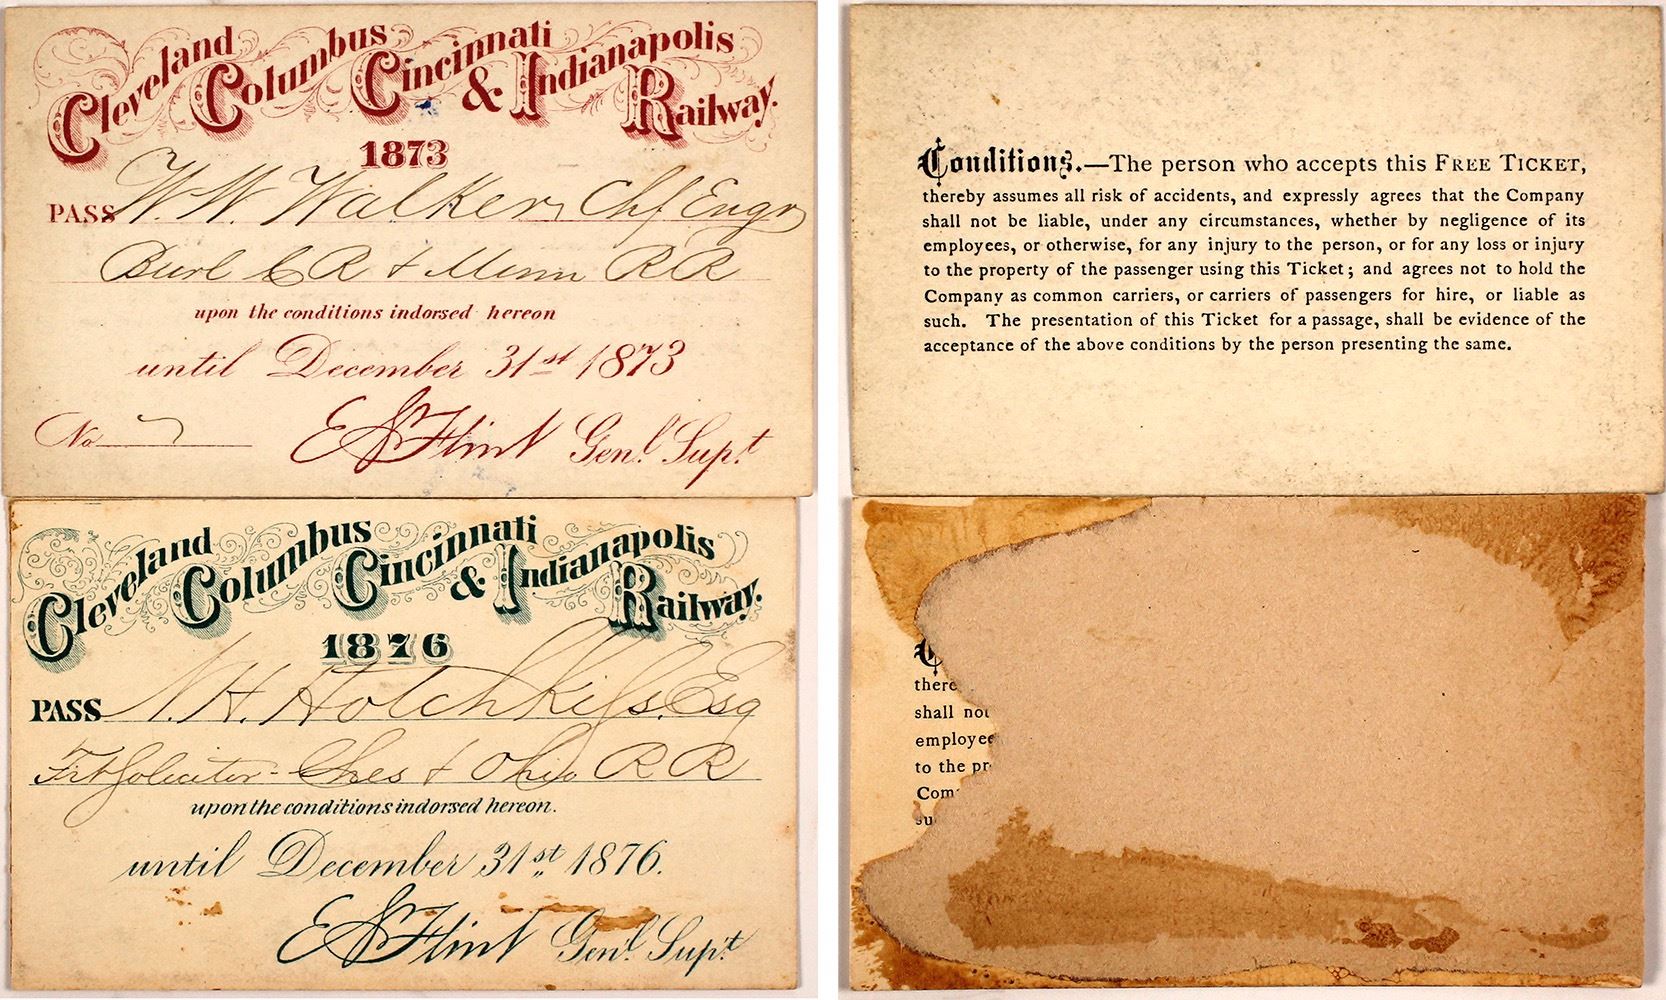 Cleveland Columbus Cincinnati & Indianapolis Railway.
1873
PASS W. W. Walker, Chf Engr
Burl C R & Minn RR
upon the conditions indorsed hereon
until December 31st 1873
No 7
E S Flint Genl. Supt.
Conditions.—The person who accepts this FREE TICKET,
thereby assumes all risk of accidents, and expressly agrees that the Company
shall not be liable, under any circumstances, whether by negligence of its
employees, or otherwise, for any injury to the person, or for any loss or injury
to the property of the passenger using this Ticket; and agrees not to hold the
Company as common carriers, or carriers of passengers for hire, or liable as
such. The presentation of this Ticket for a passage, shall be evidence of the
acceptance of the above conditions by the person presenting the same.
Cleveland Columbus Cincinnati & Indianapolis Railway.
1876
PASS N. H. Hotchkiss, Esq
Frt Soliciter - Ches & Ohio RR
upon the conditions indorsed hereon.
until December 31st 1876.
E S Flint Genl. Supt
there
shall not
employee
to the pr
Com
su